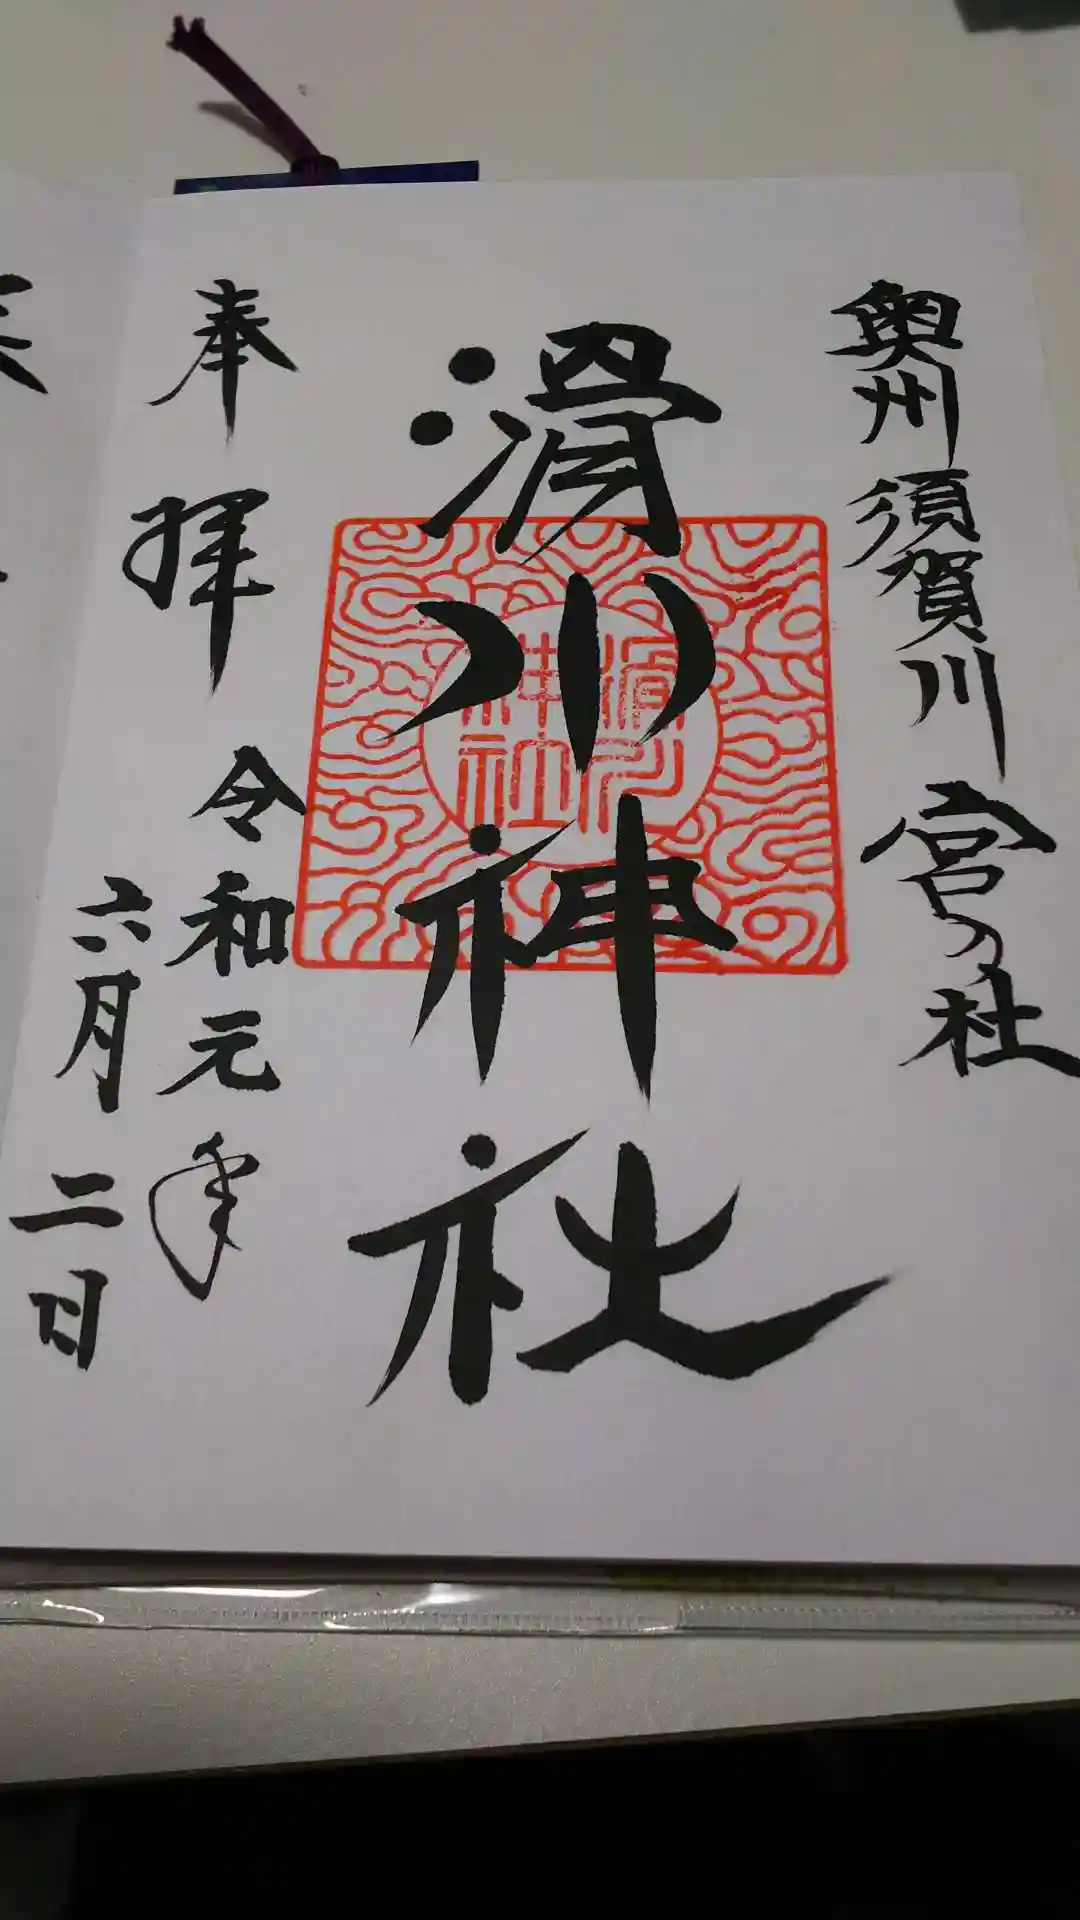 奥州須賀川 宮の杜
滑川神社
滑川
神社
奉拝
令和元年
六月二日